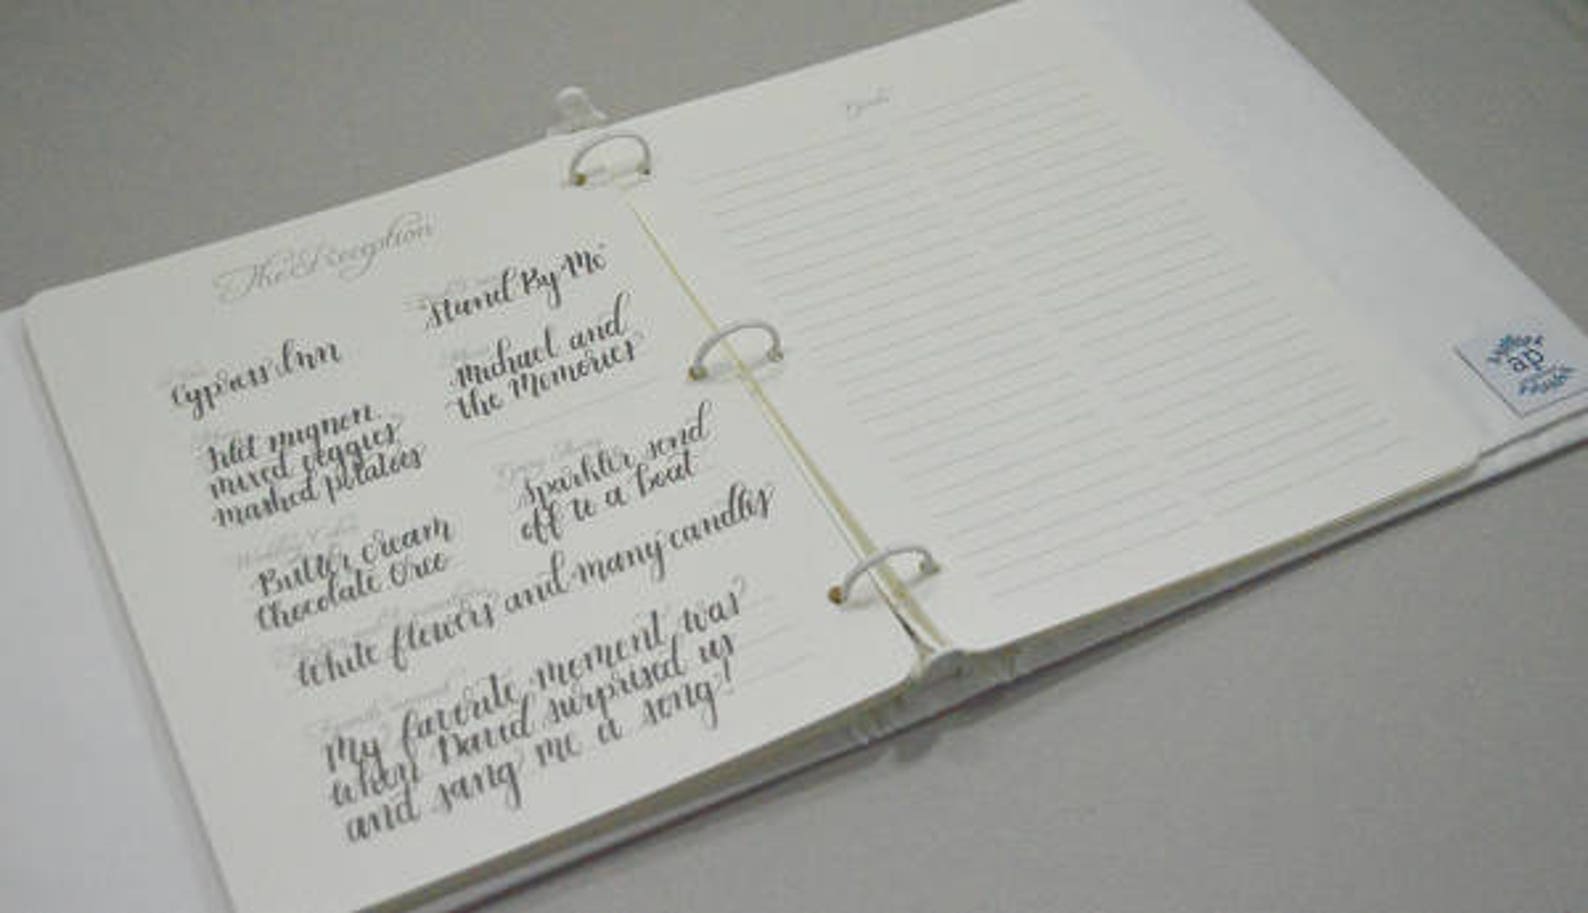 The Reception
Cypress Inn
filet mignon
mixed veggies
mashed potatoes
Wedding Cake
Butter cream
Chocolate Oreo
Stand By Me
Music
Michael and
the Memories
Sparkler send
off to a boat
White flowers and many candles
Favorite moment
My favorite moment was
when David surprised us
and sang me a song!
ap